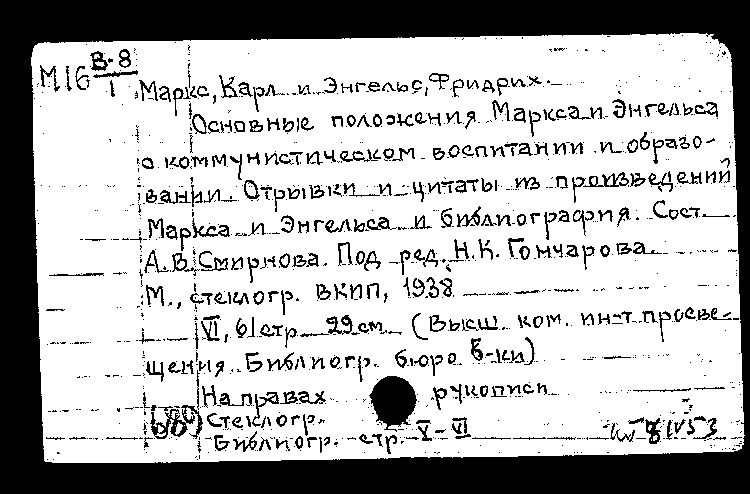 М16 В-8/1
Маркс, Карл и Энгельс, Фридрих.
Основные положения Маркса и Энгельса
о коммунистическом воспитании и образо-
вании. Отрывки и цитаты из произведений
Маркса и Энгельса и библиография. Сост.
А.В. Смирнова. Под ред. Н.К. Гончарова.
М., стеклогр. ВКИП, 1938
VI, 61 стр. 29 см. (Высш. ком. ин-т просве-
щения. Библиогр. бюро б-ки)
На правах рукописи
Стеклогр.
Библиогр. стр. V-VI